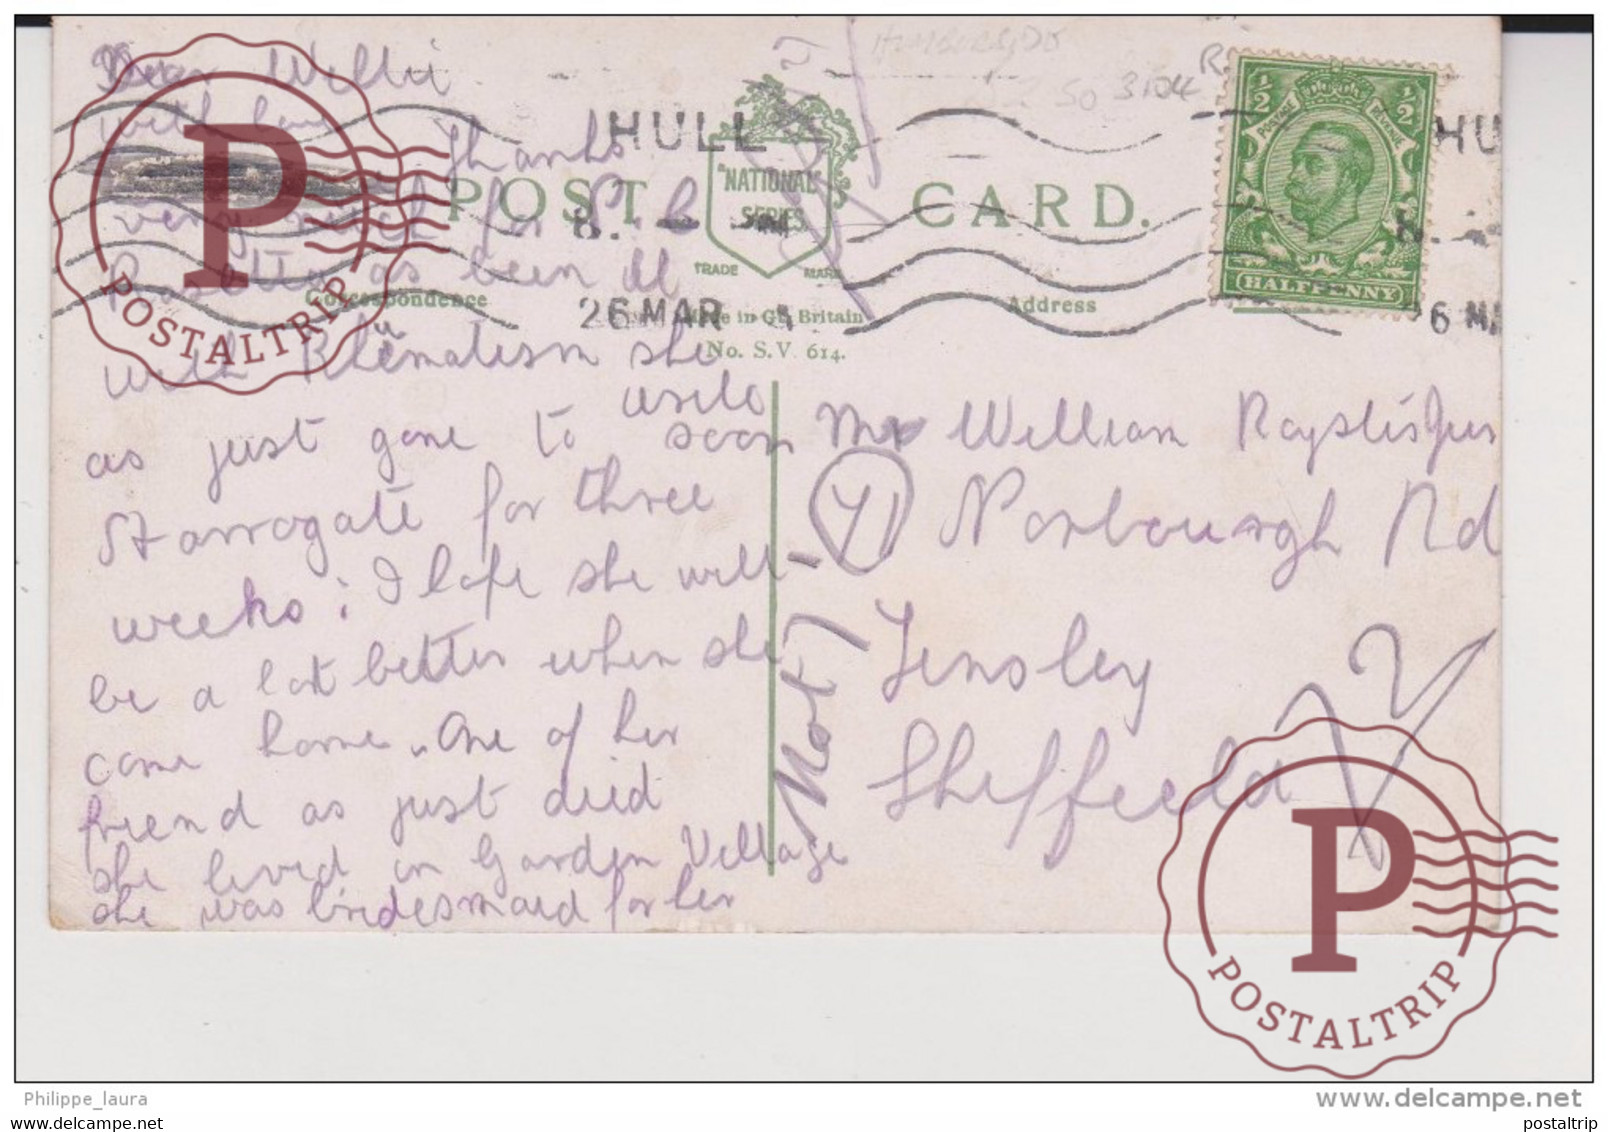 Dear Willie
with love
Thanks
very much for P.C
Rosetta as been ill
with Rheumatism she
as just gone to
Harrogate for three
weeks; I hope she will
be a lot better when she
come home. One of her
friend as just died
she lived in Garden Village
she was bridesmaid for her
write
soon
POST CARD.
"NATIONAL"
SERIES
TRADE MARK
Correspondence
Address
in Gt. Britain
No. S.V. 614.
HULL
8.
26 MAR
HU
8.
26 MA
3104
½ ½
POSTAGE REVENUE
HALFPENNY
Mr William
71 Norbourgh Rd
Tinsley
Sheffield
Not 71
P
POSTALTRIP
P
POSTALTRIP
Philippe_laura
www.delcampe.net
All rights reserved
postaltrip